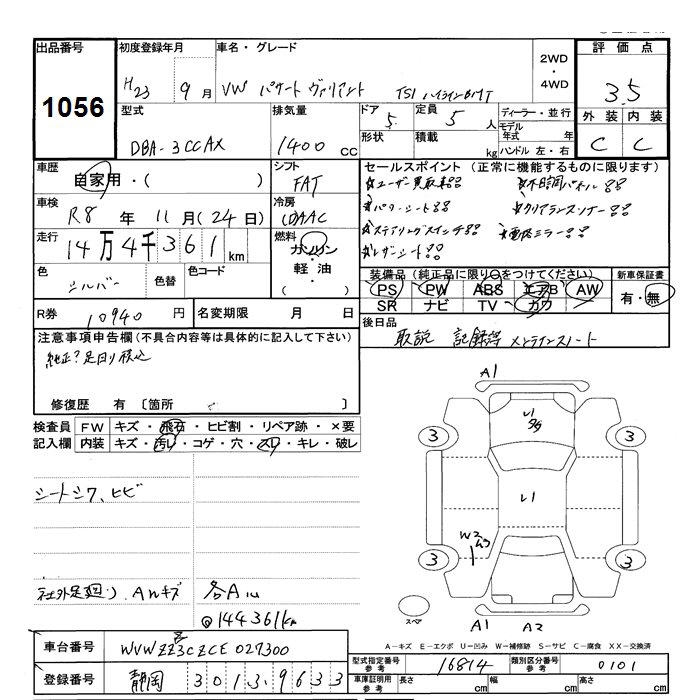 出品番号 初度登録年月 車名・グレード 2WD・4WD 評価点
1056 H23 9月 VW パサート ヴァリアント TSI ハイラインBMT 3.5
型式 排気量 ドア 定員 ディーラー・並行 外装 内装
DBA-3CCAX 1400cc 5 5人 モデル年式 年 C C
形状 積載 kg ハンドル 左・右
車歴 シフト セールスポイント(正常に機能するものに限ります)
自家用・( ) FAT
車検 冷房
R8年 11月(24日) AAC
☆パワーシート
☆クリアランスソナー
☆ステアリングスイッチ
☆電格ミラー
☆レザーシート
走行 燃料
14万4千361km ガソリン・軽油・( )
色 色替 色コード
シルバー
装備品(純正品に限り○をつけてください) 新車保証書
PS PW ABS エアB AW 有・無
SR ナビ TV カワ
R券 10940円 名変期限 月 日
後日品
取説 記録簿 メンテノート
注意事項申告欄(不具合内容等は具体的に記入して下さい)
純正?足回り積込
修復歴 有〔箇所 〕
検査員 FW キズ・飛石・ヒビ割・リペア跡・×要
記入欄 内装 キズ・汚れ・コゲ・穴・スレ・キレ・破レ
シートシワ、ヒビ
社外足廻り、AWキズ 各A
@144361km
A1
U1
3 3
U1
W2
3 3
スペア
A1 A2
A-キズ E-エクボ U-凹み W-補修跡 S-サビ C-腐食 XX-交換済
車台番号 WVWZZZ3CZCE027300
登録番号 静岡 301 3 9633
型式指定番号参考 16814 類別区分番号参考 0101
車庫証明用参考 長さ cm 幅 cm 高さ cm